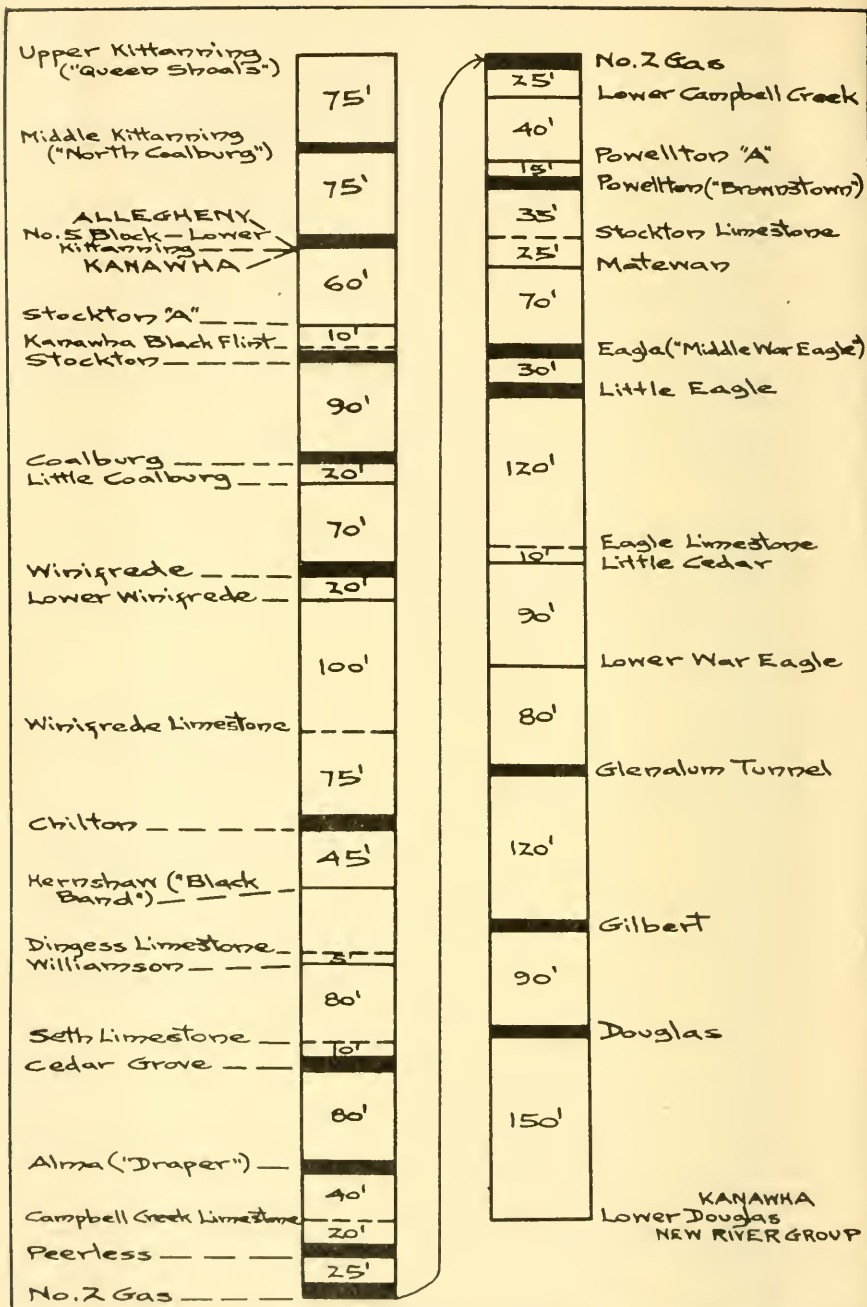 Upper Kittanning
("Queen Shoals")
75'
Middle Kittanning
("North Coalburg")
75'
ALLEGHENY
No. 5 Block – Lower
Kittanning
KANAWHA
60'
Stockton "A"
10'
Kanawha Black Flint
Stockton
90'
Coalburg
20'
Little Coalburg
70'
Winifrede
20'
Lower Winifrede
100'
Winifrede Limestone
75'
Chilton
45'
Hernshaw ("Black
Band")
Dingess Limestone
5'
Williamson
80'
Seth Limestone
10'
Cedar Grove
80'
Alma ("Draper")
40'
Campbell Creek Limestone
20'
Peerless
25'
No. 2 Gas
No. 2 Gas
25'
Lower Campbell Creek
40'
Powellton "A"
15'
Powellton ("Brownstown")
35'
Stockton Limestone
25'
Matewan
70'
Eagla ("Middle War Eagle")
30'
Little Eagle
120'
Eagle Limestone
10'
Little Cedar
90'
Lower War Eagle
80'
Glenalum Tunnel
120'
Gilbert
90'
Douglas
150'
KANAWHA
Lower Douglas
NEW RIVER GROUP